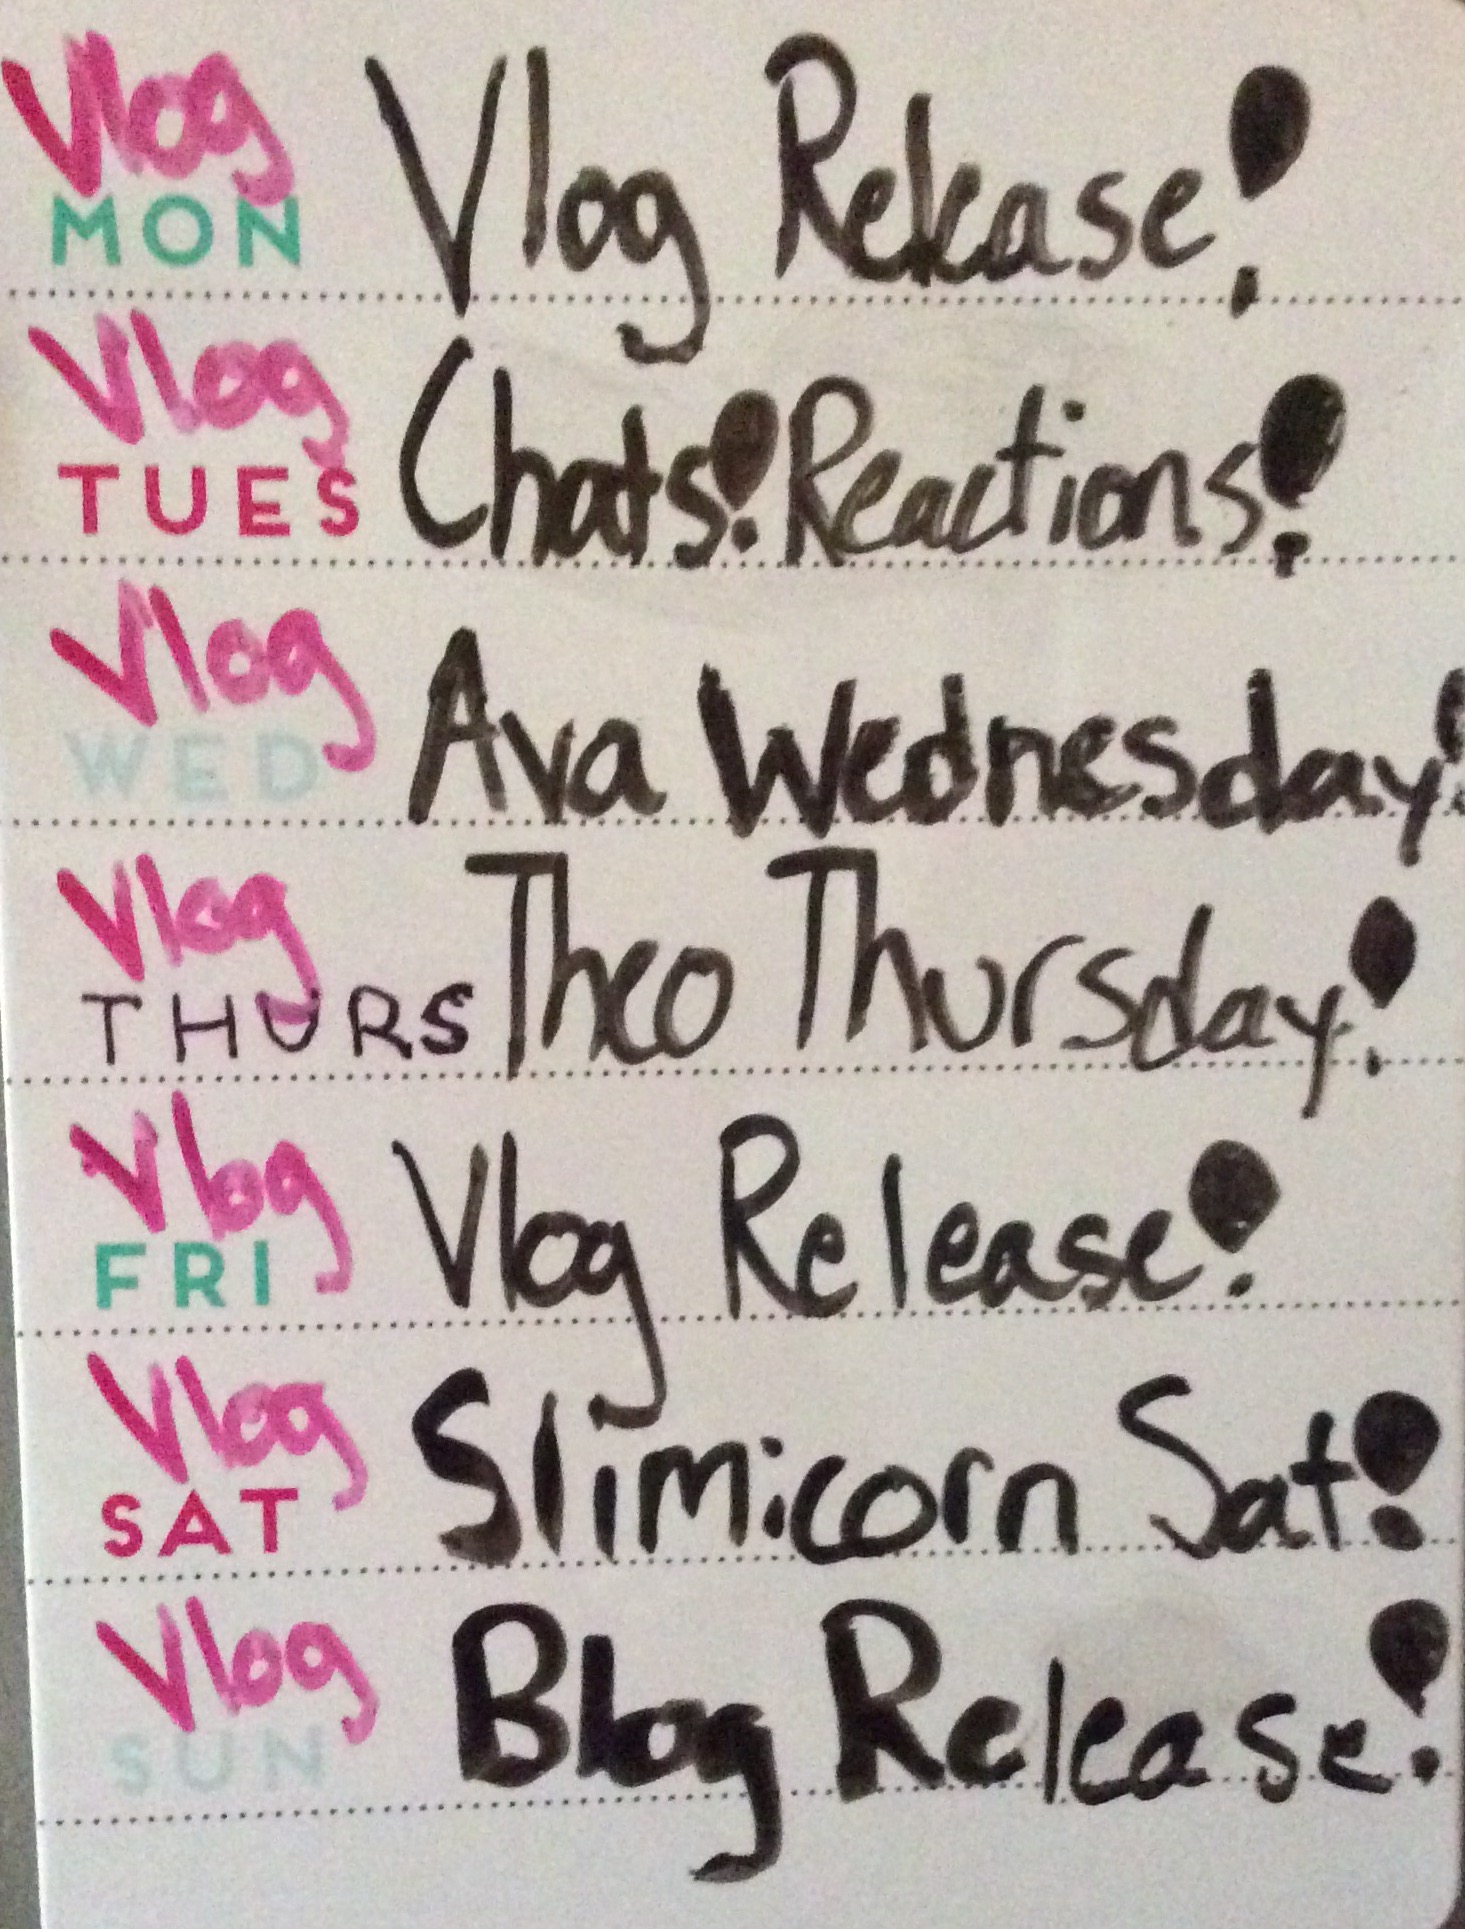 Vlog
MON Vlog Release!
Vlog
TUES Chats! Reactions!
Vlog
WED Ava Wednesday!
Vlog
THURS Theo Thursday!
Vlog
FRI Vlog Release!
Vlog
SAT Slimicorn Sat!
Vlog
SUN Blog Release!